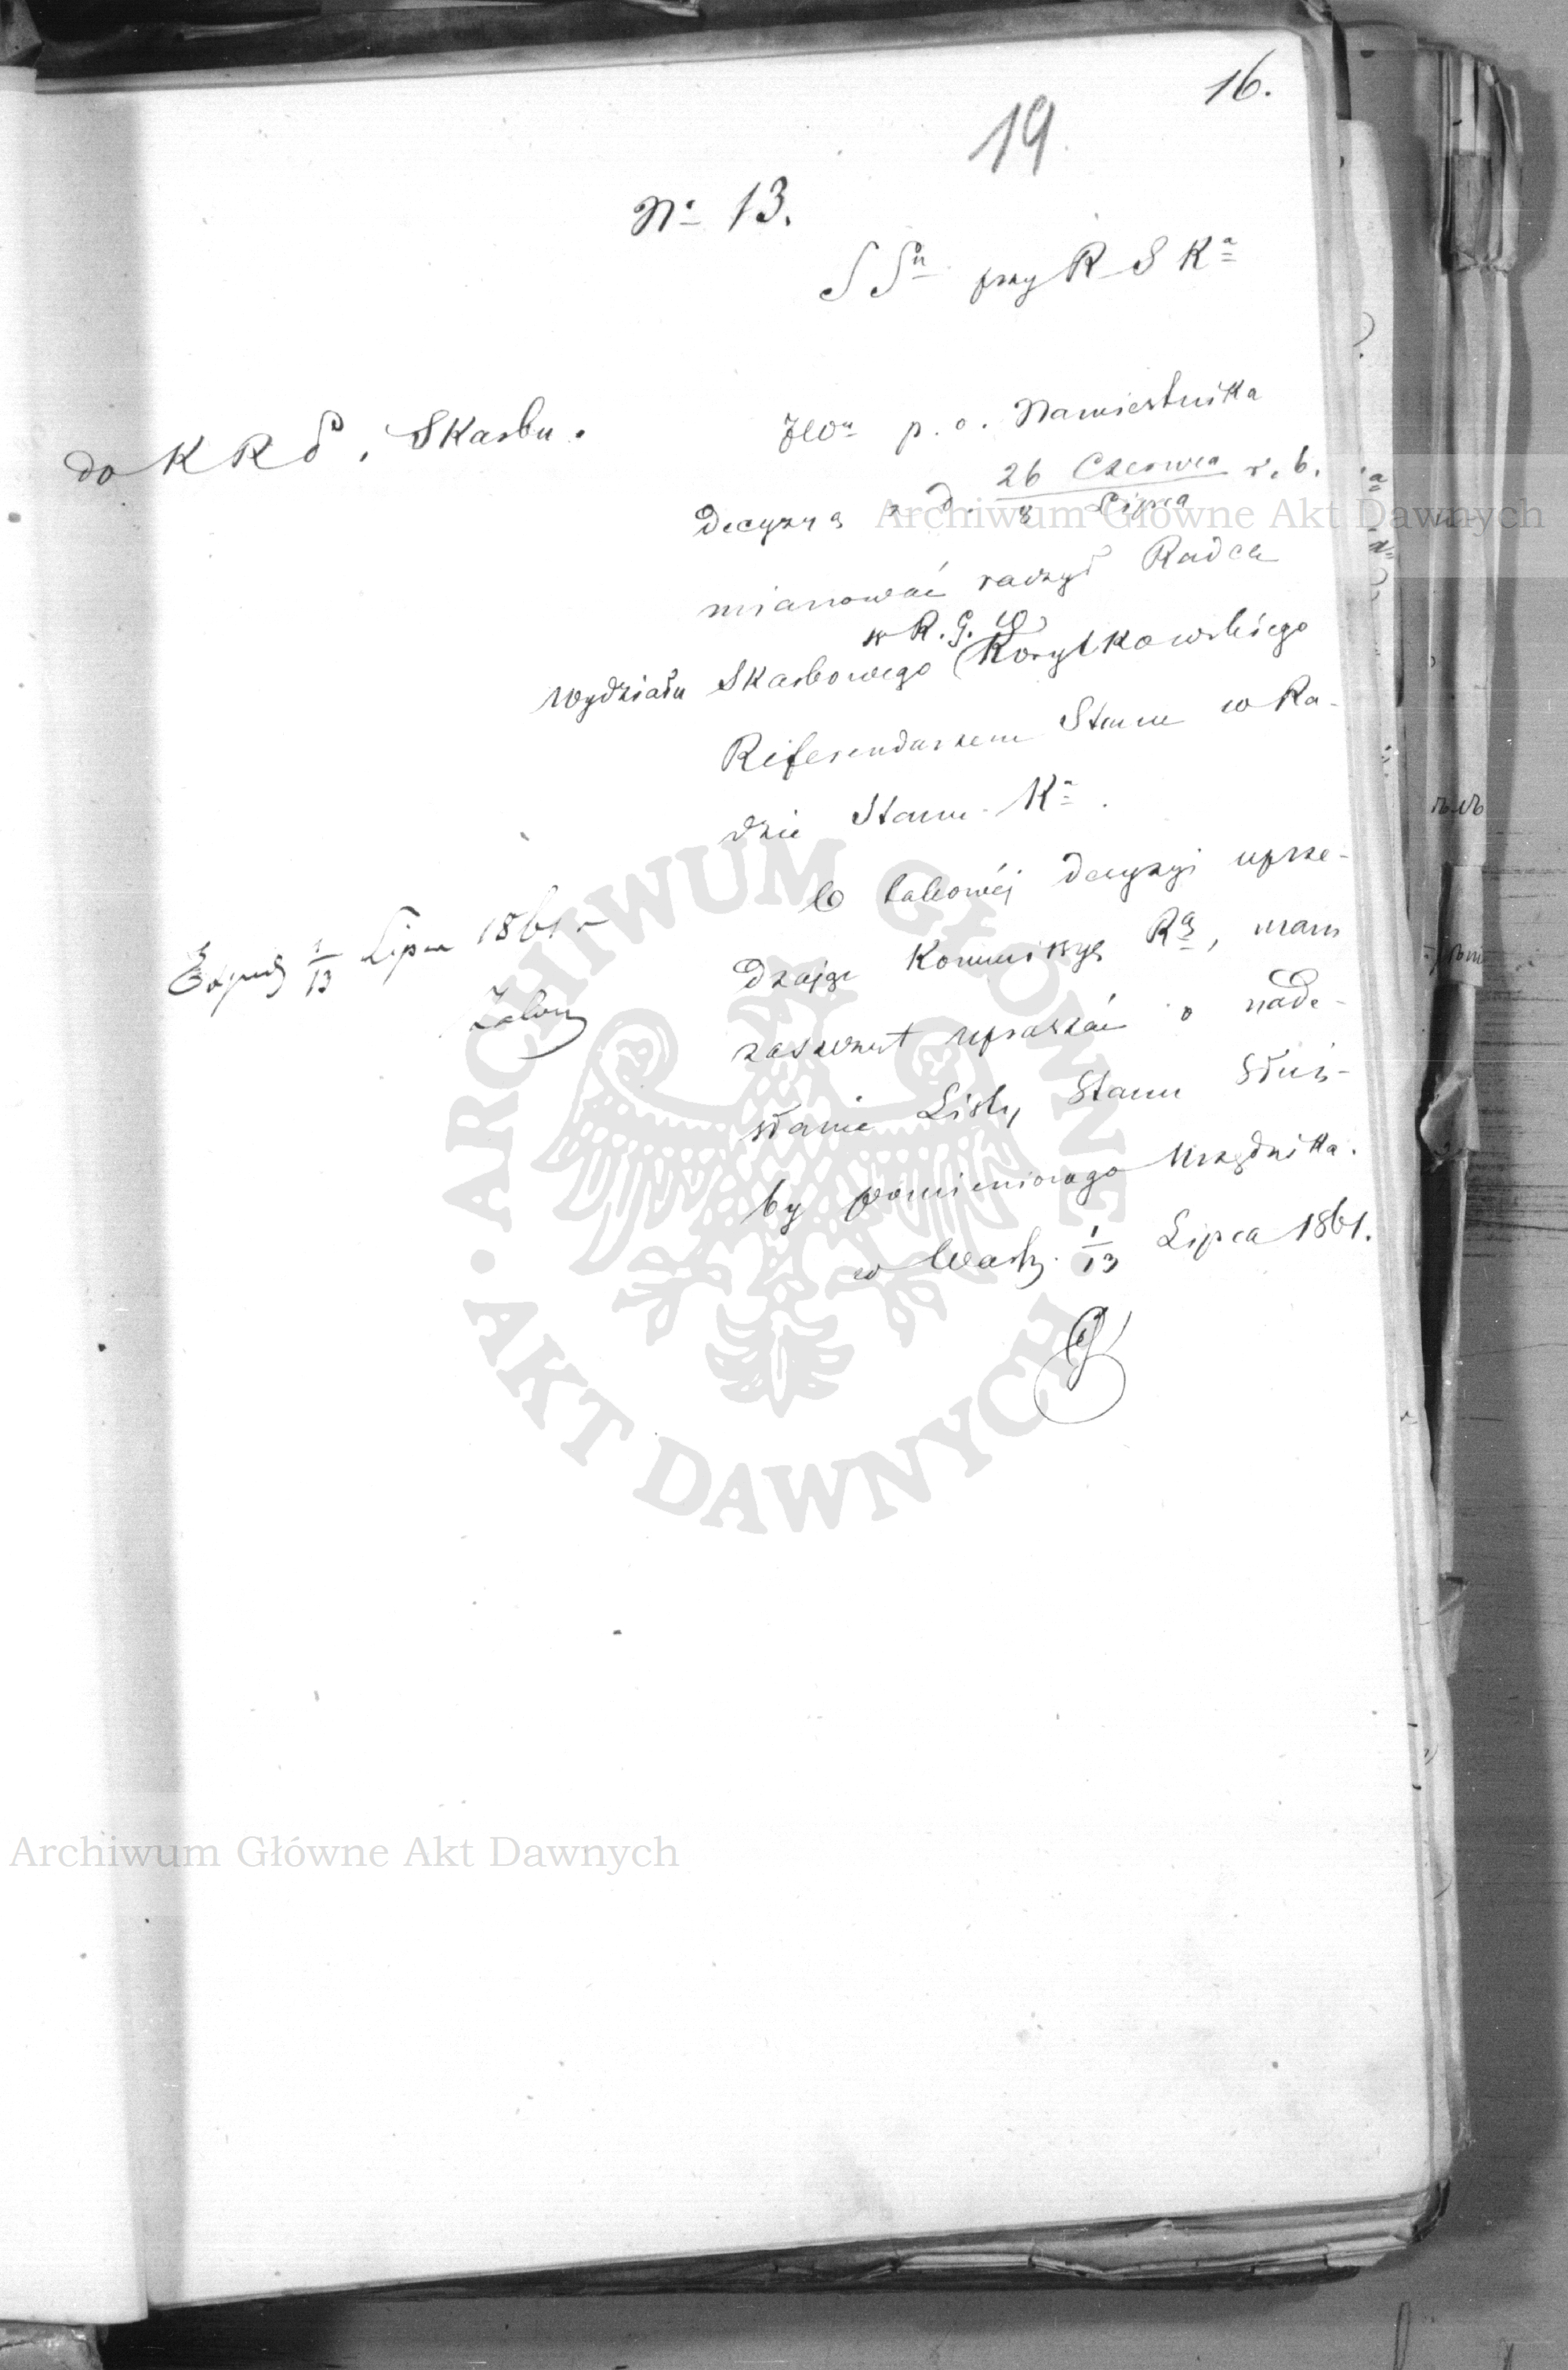 16.
19
No 13.
S Sn przy R S Ka
do K R P. i Skarbu.
JWn p. o. Namiestnika
decyzyą z d. 26 Czerwca / 8 Lipca r. b.
mianować raczył Radcę
w R. G. O
Wydziału Skarbowego Korytkowskiego
Referendarzem Stanu w Ra-
dzie Stanu Ka.
O takowéj decyzyi uprze-
dzając Kommissyę Rą, mam
zaszczyt upraszać o nade-
słanie Listy Stanu Służ-
by pomienionego Urzędnika.
w Warsz. 1/13 Lipca 1861.
1/13 Lipca 1861 r
Archiwum Główne Akt Dawnych
ARCHIWUM GŁÓWNE AKT DAWNYCH
Archiwum Główne Akt Dawnych